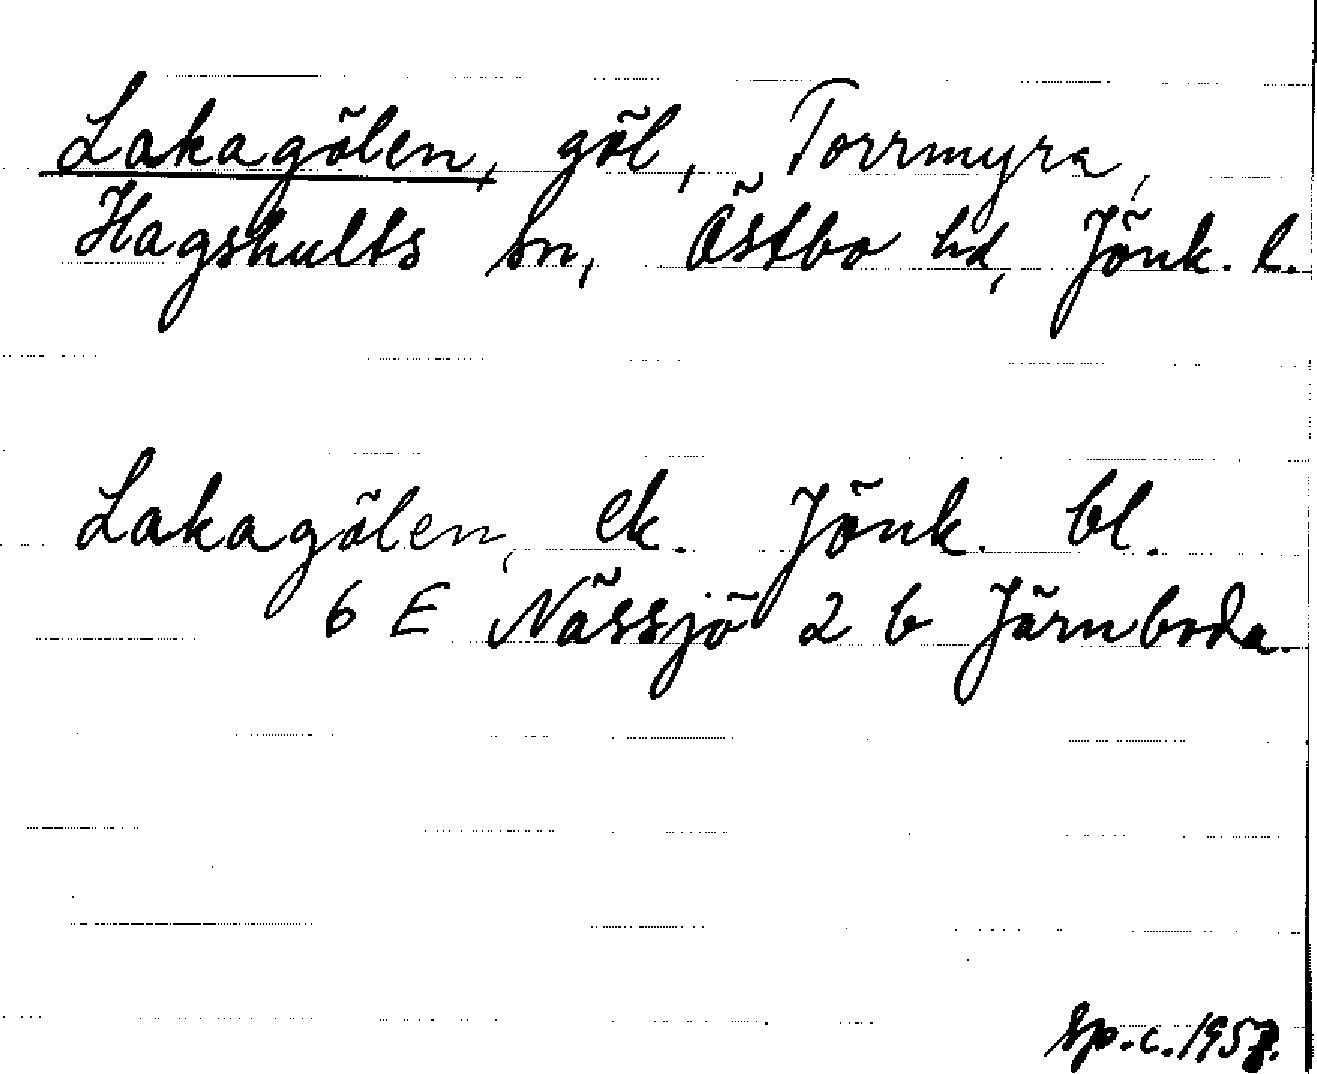 Lakagölen, göl, Torrmyra,
Hagshults sn, Östbo hd, Jönk. l.
Lakagölen, ek. Jönk. bl.
6 E Nässjö 2 b Järnboda.
Sp.c. 1957.